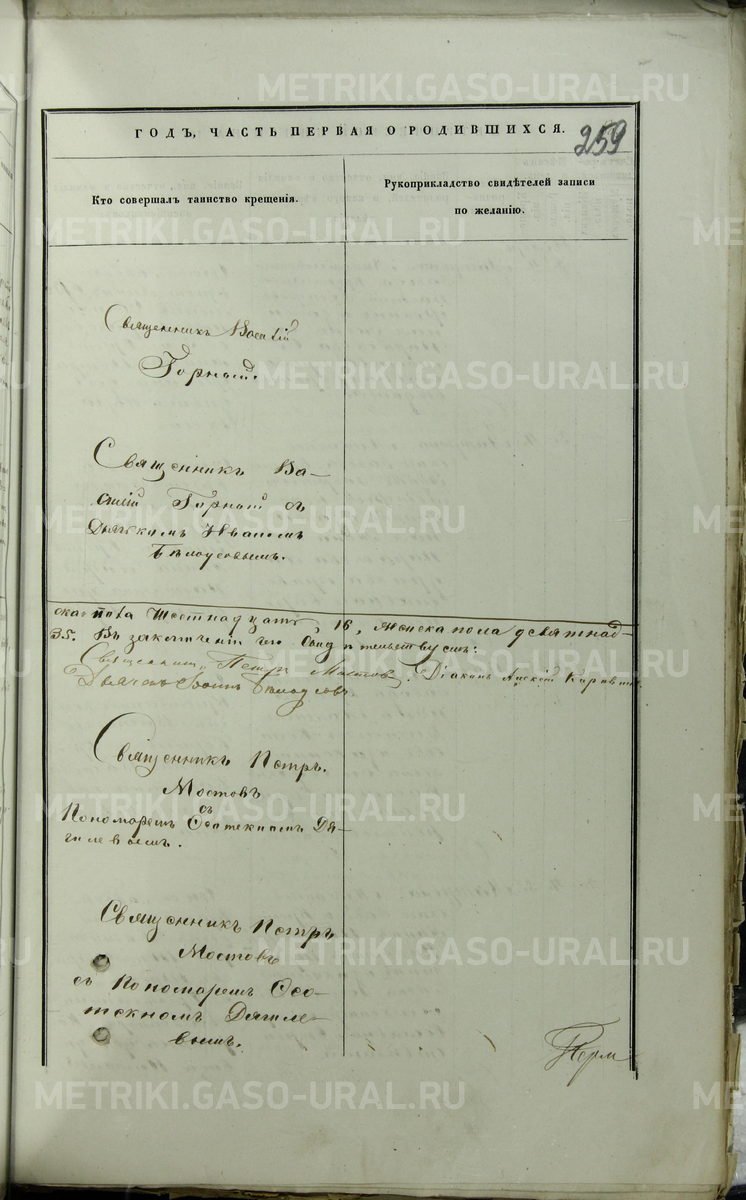 METRIKI.GASO-URAL.RU
ГОДЪ, ЧАСТЬ ПЕРВАЯ О РОДИВШИХСЯ.
259
Кто совершалъ таинство крещенія.
Рукоприкладство свидѣтелей записи
по желанію.
Священникъ Василій
Горной.
Священникъ Ва-
силій Горной съ
Дьячкомъ Иваномъ
Бѣлоусовымъ.
ска пола Шестнадцать 16, Женска пола девятнад-
35. Въ заключеніи чего Свидѣтельствуемъ:
Священникъ Петръ Мостовъ. Діаконъ Алексій
Дьячекъ Иванъ Бѣлоусовъ
Священникъ Петръ
Мостовъ
съ
Пономаремъ Ѳеотекномъ Дя-
гилевымъ.
Священникъ Петръ
Мостовъ
съ Пономаремъ Ѳео-
текномъ Дягиле-
вымъ.